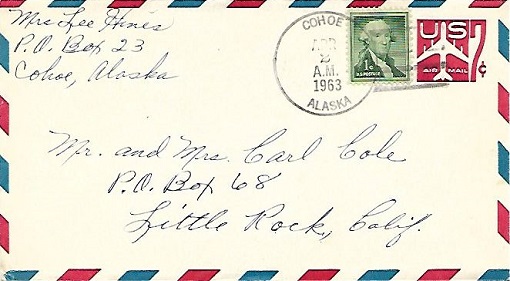 Mrs Lee Hines
P.O. Box 23
Cohoe, Alaska
COHOE
APR
2
A.M.
1963
ALASKA
1¢
U.S. POSTAGE
US
AIR MAIL
7¢
Mr. and Mrs. Carl Cole
P.O. Box 68
Little Rock, Calif.